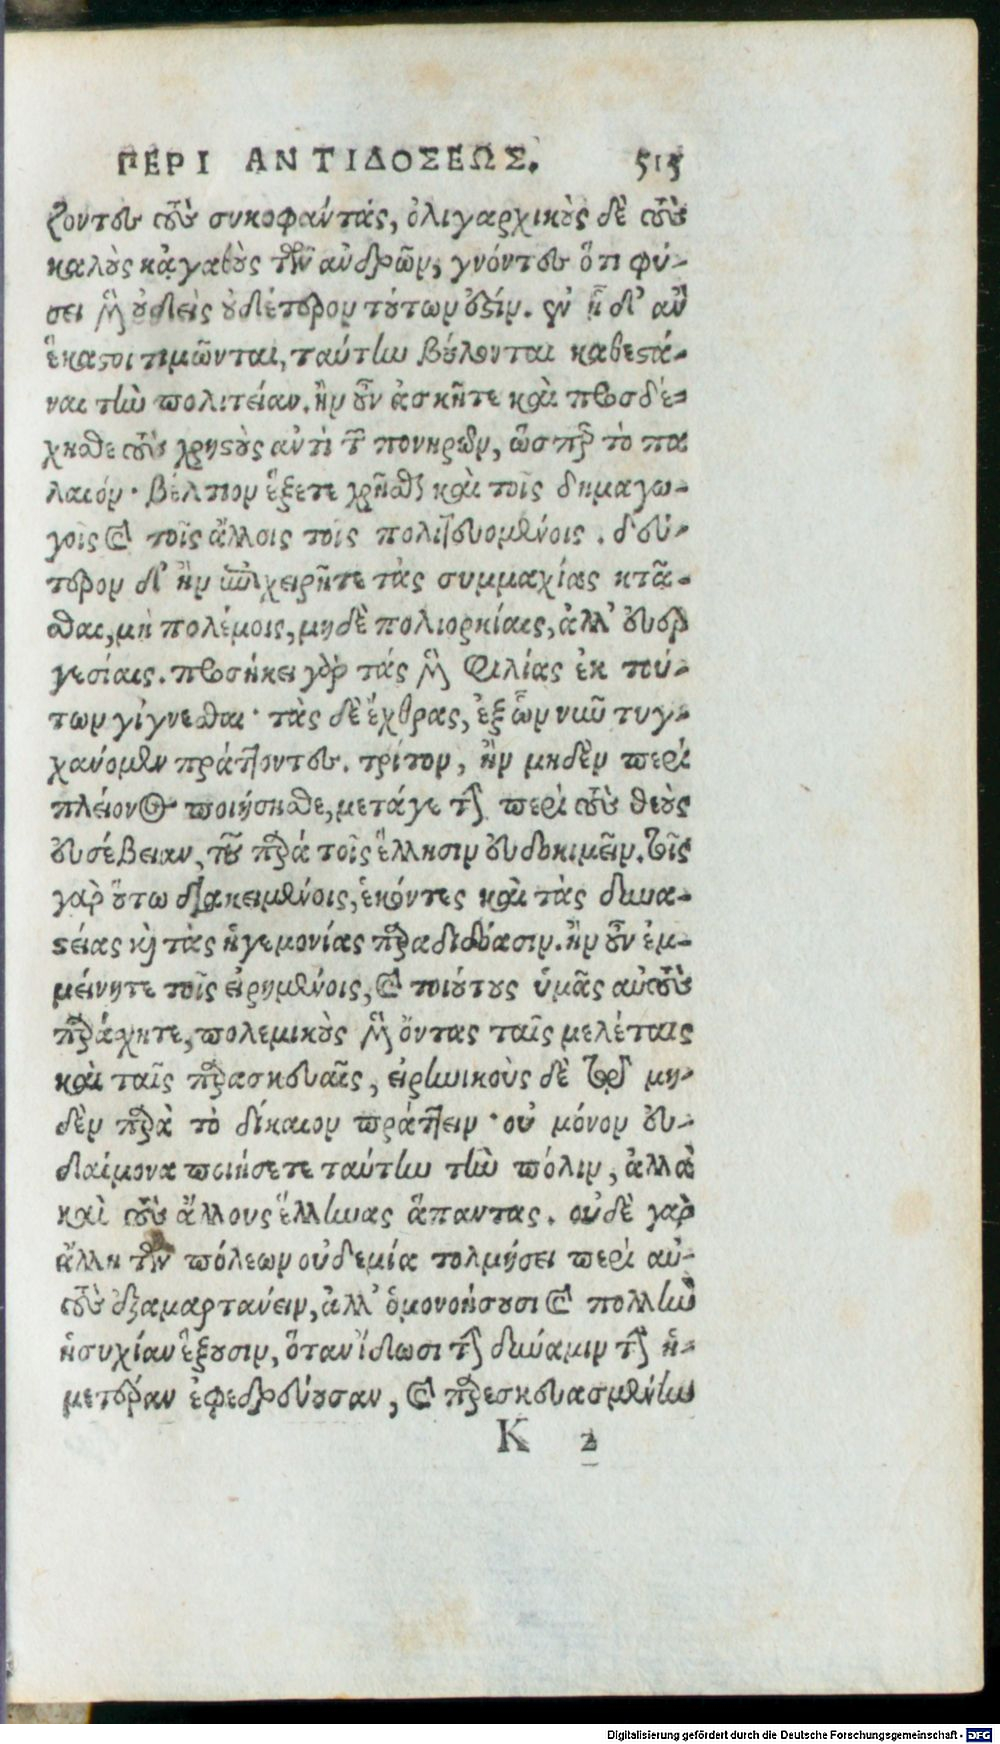 ΠΕΡΙ ΑΝΤΙΔΟΣΕΩΣ. 515
ζοντες τοὺς συκοφάντάς, ὀλιγαρχικοὺς δὲ τοὺς
καλοὺς κἀγαθοὺς τῶν ἀνδρῶν, γνόντες ὅτι φύ-
σει μὲν οὐδεὶς οὐδέτερον τούτων ἐστίν. ἐν ᾗ δ' ἂν
ἕκαστοι τιμῶνται, ταύτην βούλονται καθεστά-
ναι τὴν πολιτείαν. ἢν οὖν ἀσκῆτε καὶ προσδέ-
χησθε τοὺς χρηστοὺς ἀντὶ τῶν πονηρῶν, ὥσπερ τὸ πα
λαιόν· βέλτιον ἕξετε χρῆσθαι καὶ τοῖς δημαγω-
γοῖς καὶ τοῖς ἄλλοις τοῖς πολιτευομένοις. δεύ-
τερον δ' ἢν ἐπιχειρῆτε τὰς συμμαχίας κτᾶ-
σθαι, μὴ πολέμοις, μηδὲ πολιορκίαις, ἀλλ' εὐερ
γεσίαις. προσήκει γὰρ τάς μὲν φιλίας ἐκ τού-
των γίγνεσθαι· τὰς δὲ ἔχθρας, ἐξ ὧν νῦν τυγ-
χάνομεν πράττοντες. τρίτον, ἢν μηδὲν περὶ
πλείονος ποιήσησθε, μετάγε τὴν περὶ τοὺς θεοὺς
εὐσέβειαν, τοῦ παρὰ τοῖς ἕλλησιν εὐδοκιμεῖν. τοῖς
γὰρ οὕτω διακειμένοις, ἑκόντες καὶ τὰς δυνα-
στείας καὶ τὰς ἡγεμονίας παραδιδόασιν. ἢν οὖν ἐμ-
μείνητε τοῖς εἰρημένοις, καὶ τοιούτους ὑμᾶς αὐτοὺς
παράχητε, πολεμικοὺς μὲν ὄντας ταῖς μελέταις
καὶ ταῖς παρασκευαῖς, εἰρηνικοὺς δὲ τῷ μη-
δὲν παρὰ τὸ δίκαιον πράττειν· οὐ μόνον εὐ-
δαίμονα ποιήσετε ταύτην τὴν πόλιν, ἀλλὰ
καὶ τοὺς ἄλλους ἕλληνας ἅπαντας. οὐδὲ γὰρ
ἄλλη τῶν πόλεων οὐδεμία τολμήσει περὶ αὐ-
τοὺς ἐξαμαρτάνειν, ἀλλ' ὁμονοήσουσι καὶ πολλὴν
ἡσυχίαν ἕξουσιν, ὅταν ἴδωσι τὴν δύναμιν τὴν ἡ-
μετέραν ἐφεδρεύουσαν, καὶ παρεσκευασμένην
K 2
Digitalisierung gefördert durch die Deutsche Forschungsgemeinschaft - DFG